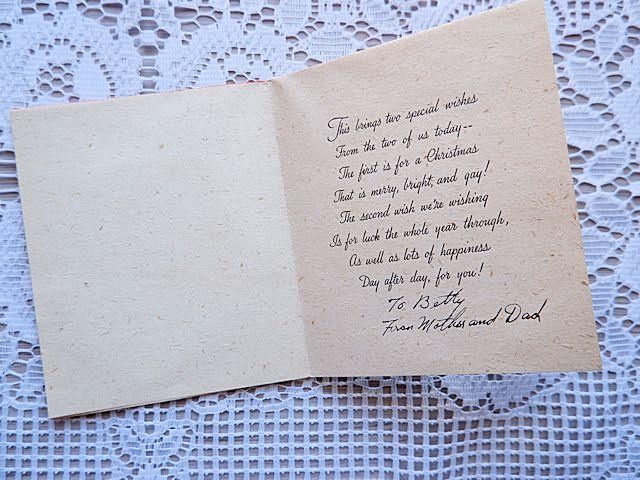 This brings two special wishes
From the two of us today--
The first is for a Christmas
That is merry, bright, and gay!
The second wish we're wishing
Is for luck the whole year through,
As well as lots of happiness
Day after day, for you!
To Betty
From Mother and Dad